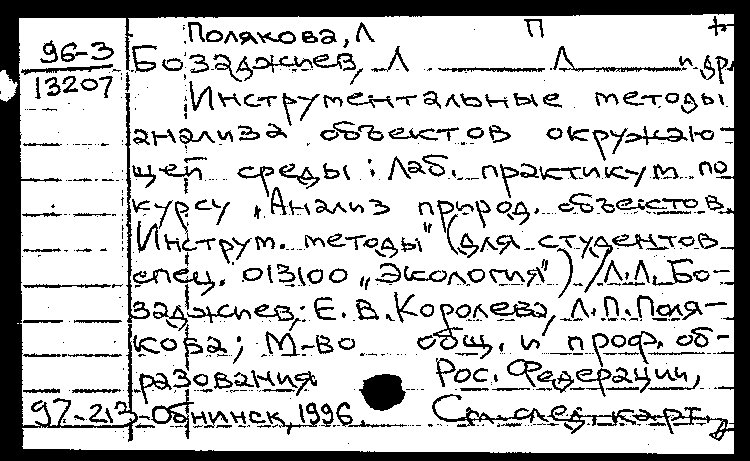 Полякова, Л П +
96-3 Бозаджиев, Л Л и др.
13207 Инструментальные методы
анализа объектов окружаю-
щей среды: Лаб. практикум по
курсу „Анализ природ. объектов.
Инструм. методы" (для студентов
спец. 013100 „Экология") / Л.Л. Бо-
заджиев, Е. В. Королева, Л.П. Поля-
кова; М-во общ. и проф. об-
разования Рос. Федерации,
97-213 Обнинск, 1996. См. след. карт.